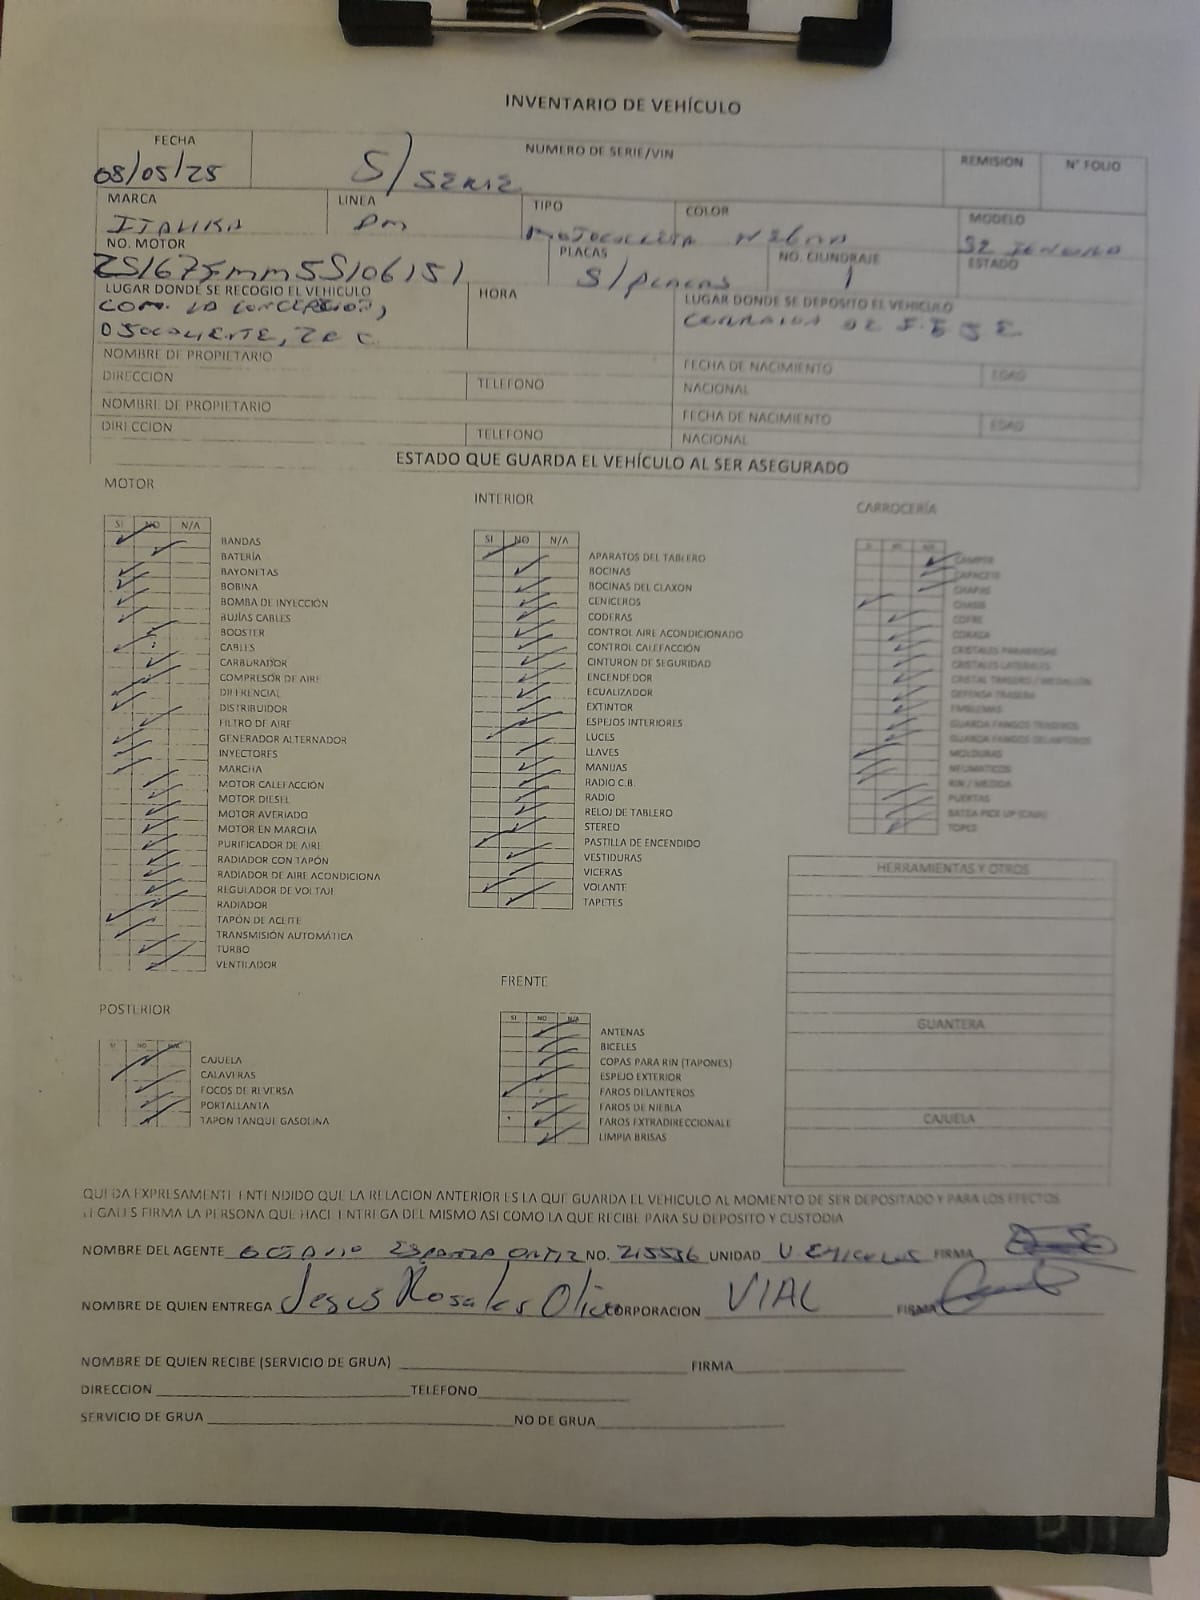 INVENTARIO DE VEHÍCULO
FECHA NUMERO DE SERIE/VIN REMISION N° FOLIO
08/05/25 S/SERIE
MARCA LINEA TIPO COLOR MODELO
ITALIKA DM MOTOCICLETA NEGRO SE IGNORA
NO. MOTOR PLACAS NO. CILINDRAJE ESTADO
S/PLACAS 1
LUGAR DONDE SE RECOGIO EL VEHICULO HORA LUGAR DONDE SE DEPOSITO EL VEHICULO
COM. LA CONCEPCION,
NOMBRE DE PROPIETARIO FECHA DE NACIMIENTO EDAD
DIRECCIÓN TELEFONO NACIONAL
NOMBRE DE PROPIETARIO FECHA DE NACIMIENTO EDAD
DIRECCION TELEFONO NACIONAL
ESTADO QUE GUARDA EL VEHÍCULO AL SER ASEGURADO
MOTOR
SI NO N/A
BANDAS
BATERÍA
BAYONETAS
BOBINA
BOMBA DE INYECCIÓN
BUJÍAS CABLES
BOOSTER
CABLES
CARBURADOR
COMPRESOR DE AIRE
DIFERENCIAL
DISTRIBUIDOR
FILTRO DE AIRE
GENERADOR ALTERNADOR
INYECTORES
MARCHA
MOTOR CALEFACCIÓN
MOTOR DIESEL
MOTOR AVERIADO
MOTOR EN MARCHA
PURIFICADOR DE AIRE
RADIADOR CON TAPÓN
RADIADOR DE AIRE ACONDICIONA
REGULADOR DE VOLTAJE
RADIADOR
TAPÓN DE ACEITE
TRANSMISIÓN AUTOMÁTICA
TURBO
VENTILADOR
INTERIOR
SI NO N/A
APARATOS DEL TABLERO
BOCINAS
BOCINAS DEL CLAXON
CENICEROS
CODERAS
CONTROL AIRE ACONDICIONADO
CONTROL CALEFACCIÓN
CINTURON DE SEGURIDAD
ENCENDEDOR
ECUALIZADOR
EXTINTOR
ESPEJOS INTERIORES
LUCES
LLAVES
MANIJAS
RADIO C.B.
RADIO
RELOJ DE TABLERO
STEREO
PASTILLA DE ENCENDIDO
VESTIDURAS
VICERAS
VOLANTE
TAPETES
CARROCERÍA
CAMPER
CAPACETE
CHAPAS
CHASIS
COFRE
CORAZA
CRISTALES PARABRISAS
CRISTALES LATERALES
CRISTAL TRASERO / MEDALLÓN
DEFENSA TRASERA
EMBLEMAS
GUARDA FANGOS TRASEROS
GUARDA FANGOS DELANTEROS
MOLDURAS
NEUMATICOS
RIN / MEDIDA
PUERTAS
BATEA PICK UP (CAJA)
TOPES
HERRAMIENTAS Y OTROS
GUANTERA
CAJUELA
POSTERIOR
SI NO N/A
CAJUELA
CALAVERAS
FOCOS DE REVERSA
PORTALLANTA
TAPON TANQUE GASOLINA
FRENTE
SI NO N/A
ANTENAS
BICELES
COPAS PARA RIN (TAPONES)
ESPEJO EXTERIOR
FAROS DELANTEROS
FAROS DE NIEBLA
FAROS EXTRADIRECCIONALE
LIMPIA BRISAS
QUEDA EXPRESAMENTE ENTENDIDO QUE LA RELACION ANTERIOR ES LA QUE GUARDA EL VEHICULO AL MOMENTO DE SER DEPOSITADO Y PARA LOS EFECTOS
LEGALES FIRMA LA PERSONA QUE HACE ENTREGA DEL MISMO ASI COMO LA QUE RECIBE PARA SU DEPOSITO Y CUSTODIA
NOMBRE DEL AGENTE OCTAVIO ESPARZA ORTIZ NO. 215536 UNIDAD FIRMA
NOMBRE DE QUIEN ENTREGA Jesus Rosales CORPORACION VIAL FIRMA
NOMBRE DE QUIEN RECIBE (SERVICIO DE GRUA) FIRMA
DIRECCION TELEFONO
SERVICIO DE GRUA NO DE GRUA